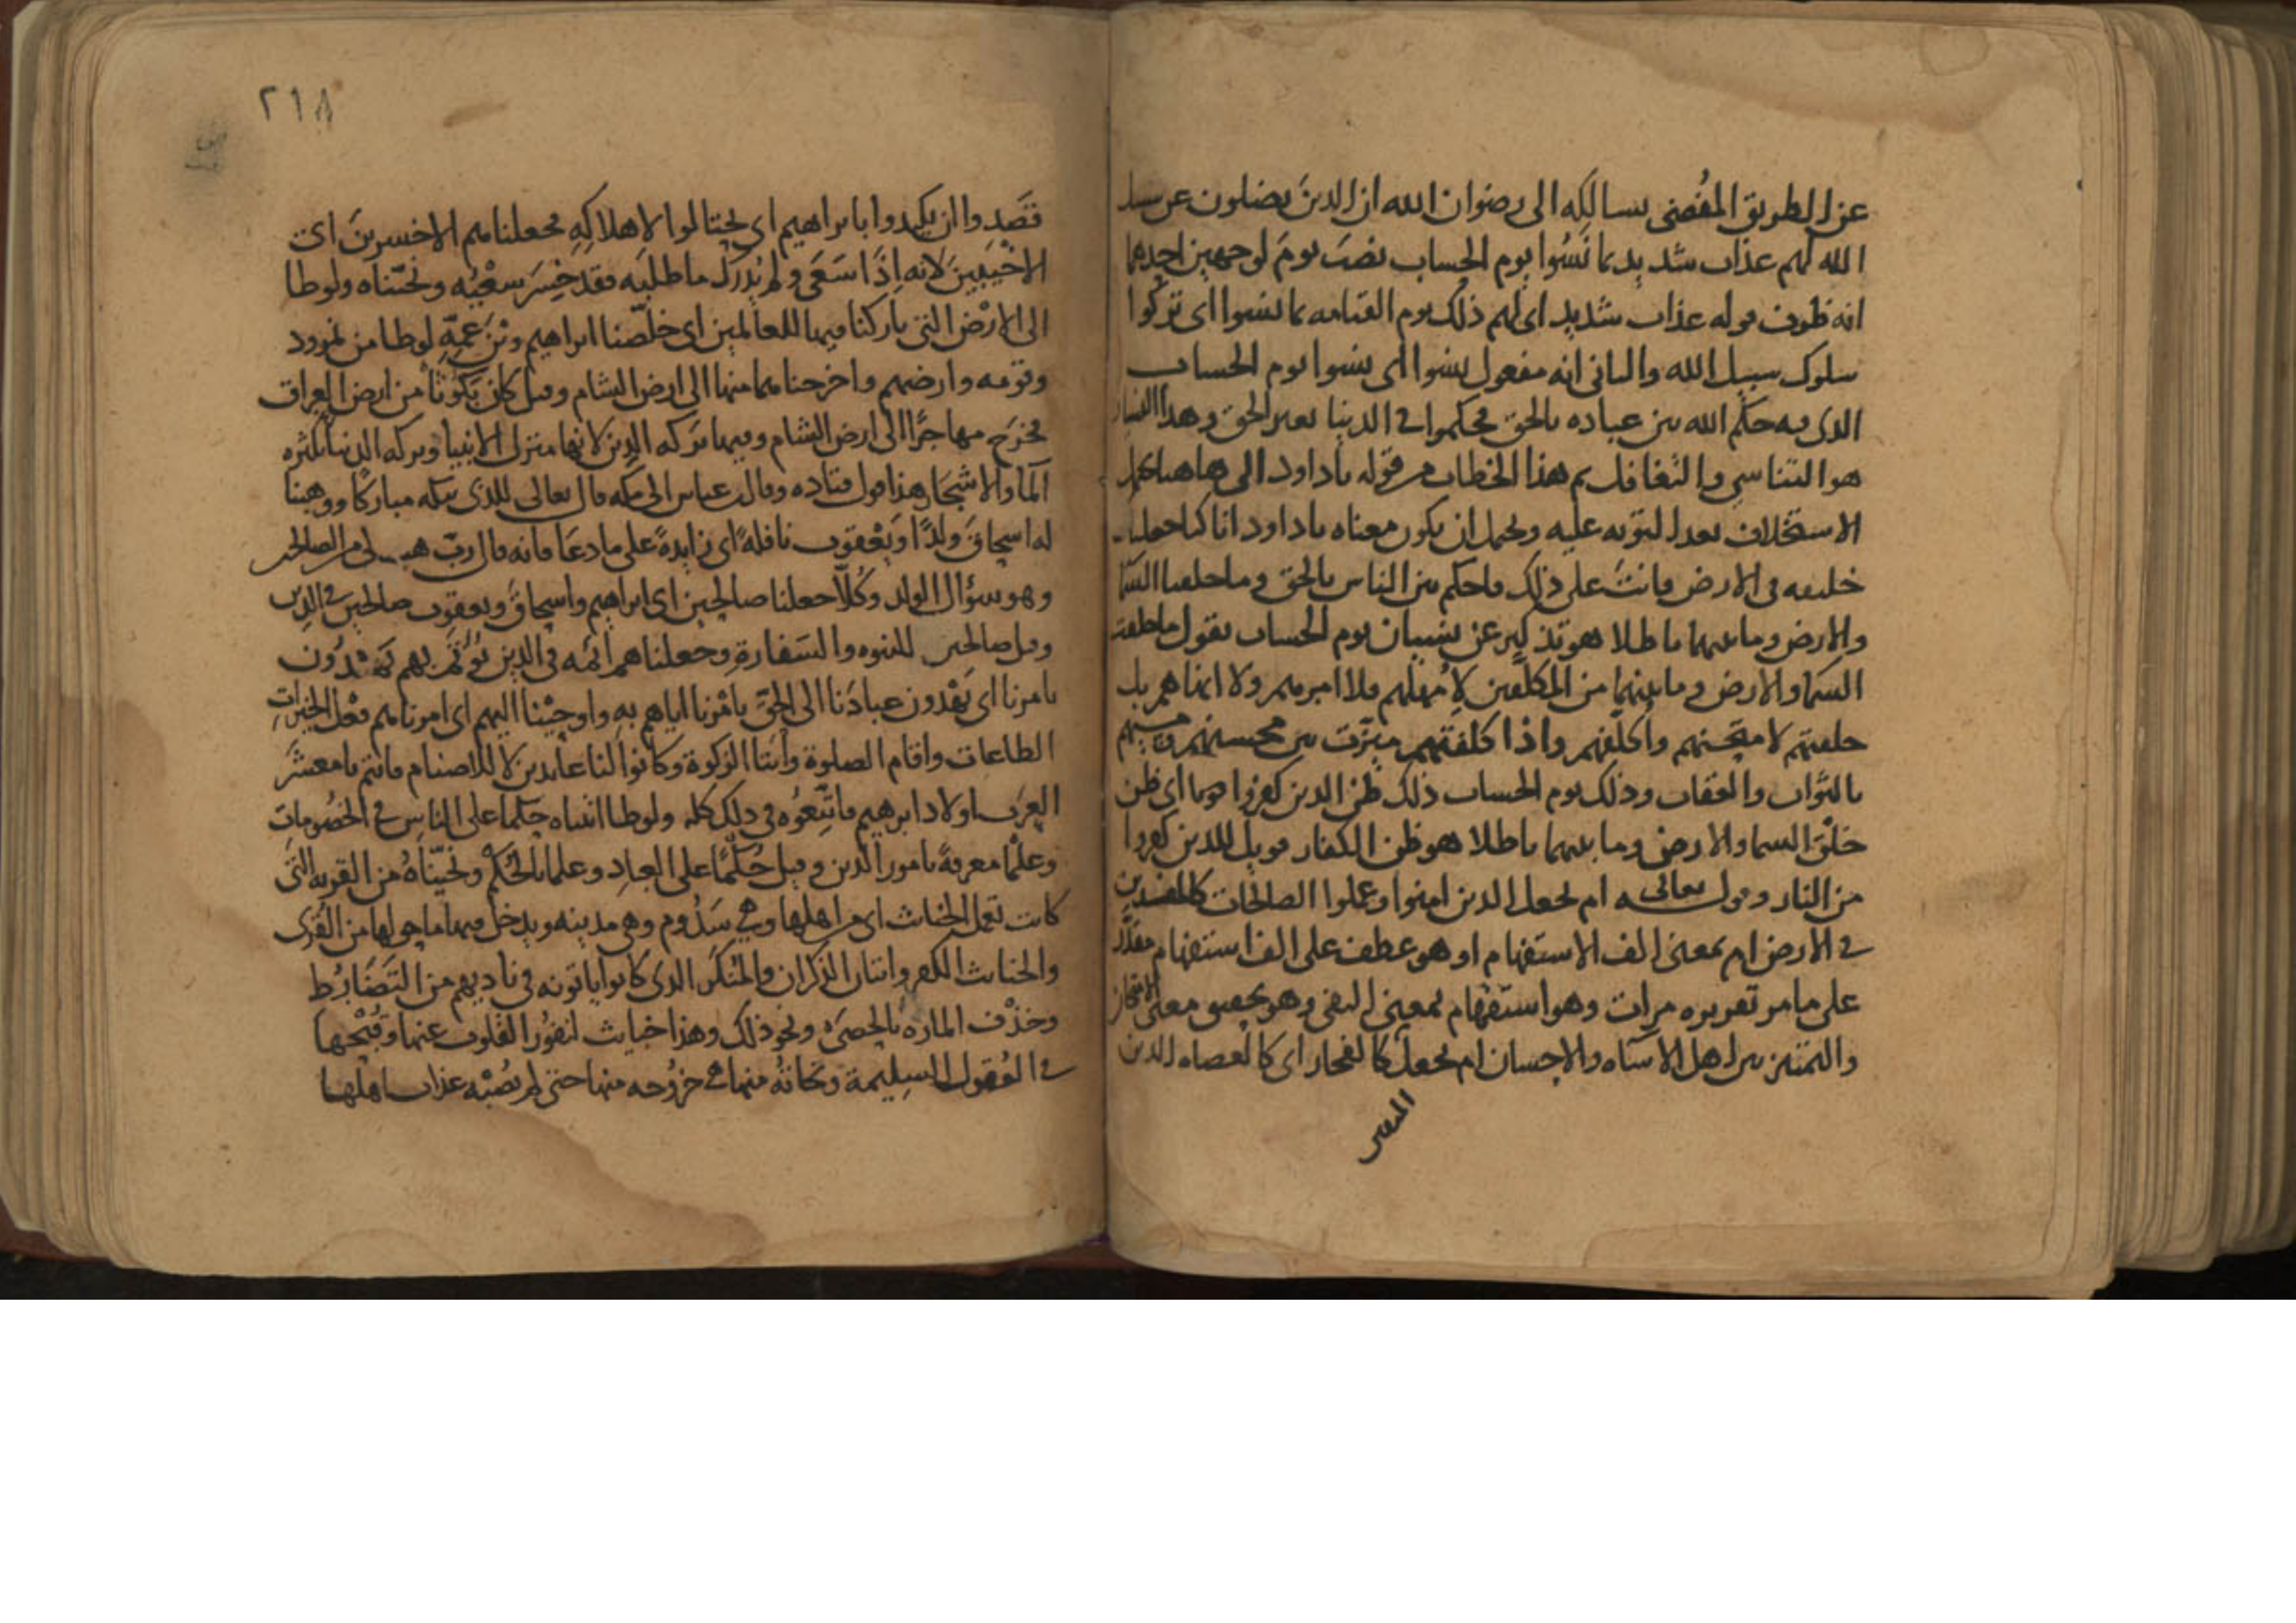 عن الطريق المُفْضي بسالكِه الى رضوان الله ان الذينَ يضلون عن سبيل
الله لهم عذاب شديد بما نَسُوا يوم الحساب نصَبَ يومَ لوجهين احدهما
انه ظرف قوله عذاب شديد اى لهم ذلك يوم القيامه بما نسوا اى تركوا
سلوك سبيل الله والثانى انه مفعول نسوا اى نسوا يوم الحساب
الذى فيه حكَم الله بين عباده بالحق فحكموا في الدنيا بغير الحق وهذا النسيان
هو التناسي والتغافل ثم هذا الخطاب من قوله ياداود الى هاهنا
الاستخلاف بعد التوبه عليه ويحتمل ان يكون معناه ياداود انا كنا جعلناك
خليفه فى الارض فانتَ على ذلك فاحكم بين الناس بالحق وما خلقنا السَّما
والارض وما بينهما باطلا هو تذكير عن نسيان يوم الحساب يقول ما خلقت
السَّما والارض وما بينهما من المكلَّفين لِاُهملهم فلا امرهم ولا انهاهم بل
خلقتهم لامتحنهم واُكلّفهم واذا كلفتهم ميّزت بين محسنهم ومسيهم
بالثواب والعقاب وذلك يوم الحساب ذلك ظن الذين كفروا اى ظن
خلْقَ السما والارض وما بينهما باطلا هو ظن الكفار فويل للذين كفروا
من النار وقوله تعالى ام نجعل الذين امنوا وعملوا الصالحات كالمفسدين
في الارض ام بمعنى الف الاستفهام او هو عطف على الف استفهام مقدَّر
على ما مر تقريره مرات وهو استفهام بمعنى النفى وهو تحقيق معنى الامتحان
والتمييز بين اهل الاساه والاحسان ام نجعل كالفجار اى كالعصاه الذين
٢١٨
قصَدوا ان يكيدوا بابراهيم اى يحتالوا لاهلاكِهِ فجعلناهم الاخسرينَ اى
الاخيَبِينَ لانه اِذَا سَعَى ولم يُدرَك ما طلبَه فقد خسِرَ سعْيُه ونجّيناه ولوطا
الى الارْض التى باركنا فيها للعالمين اى خلّصنا ابراهيم وبْنَ عمِّه لوطا من نمرود
وقومه وارضهم واخرجناهما منها الى ارض الشام وقيل كان بكُوثَا من ارض العراق
فخرَج مهاجرًا الى ارض الشام وفيها بَركه الدين لانها منزل الانبيا وبركه الدنيا بكثره
المآ والاشجار هذا قول قتاده وقال بن عباس الى مكه قال تعالى للذى ببكه مباركًا ووهبنا
له اسحاقَ ولدًا ويَعْقوب نافلهً اى زايدهً على ما دعَا فانه قال ربّ هب لى من الصالحين
وهو سؤال الولد وكُلّا جعلنا صالحين اى ابراهيم واسحاقَ ويعقوب صالحين في الدين
وقيل صالحين للنبوه والسَفارةِ وجعلناهم ائمه فى الدين يُؤتَمّ بهم يَهْدُون
بامرنا اى يَهْدون عبادَنا الى الحقّ بامْرنا اياهم به واوحيْنا اليهم اى امرناهم فعْل الخيراتِ
الطاعات واقام الصلوة وايتا الزكوة وكانوا لنا عابدين لا للاصنام فانتم يا معشَر
العرَب اولاد ابرهيم فاتّبعُوه فى ذلك كله ولوطا اتيناه حكما على الناسِ في الخصُومات
وعلْما معرفةً بامور الدين وقيل حُكْمًا على العبادِ وعلما بالحُكْم ونجّيناهُ من القريه التى
كانت تعمل الخبائث اى من اهلها وهي سَدُوم وهى مدينه ويدخل فيها ما حولها من القُرى
والخبائث الكفر واتيان الذكران والمُنكَر الذى كانوا ياتونه فى ناديهم من التَضَارُط
وخذْف الماره بالحصَى ونحو ذلك وهذا خبايث لنفُور القلوب عنها وقُبْحها
في العُقول السليمة ونجاتهُ منها في خرُوجه منها حتى لم يُصبْه عذاب اهلها